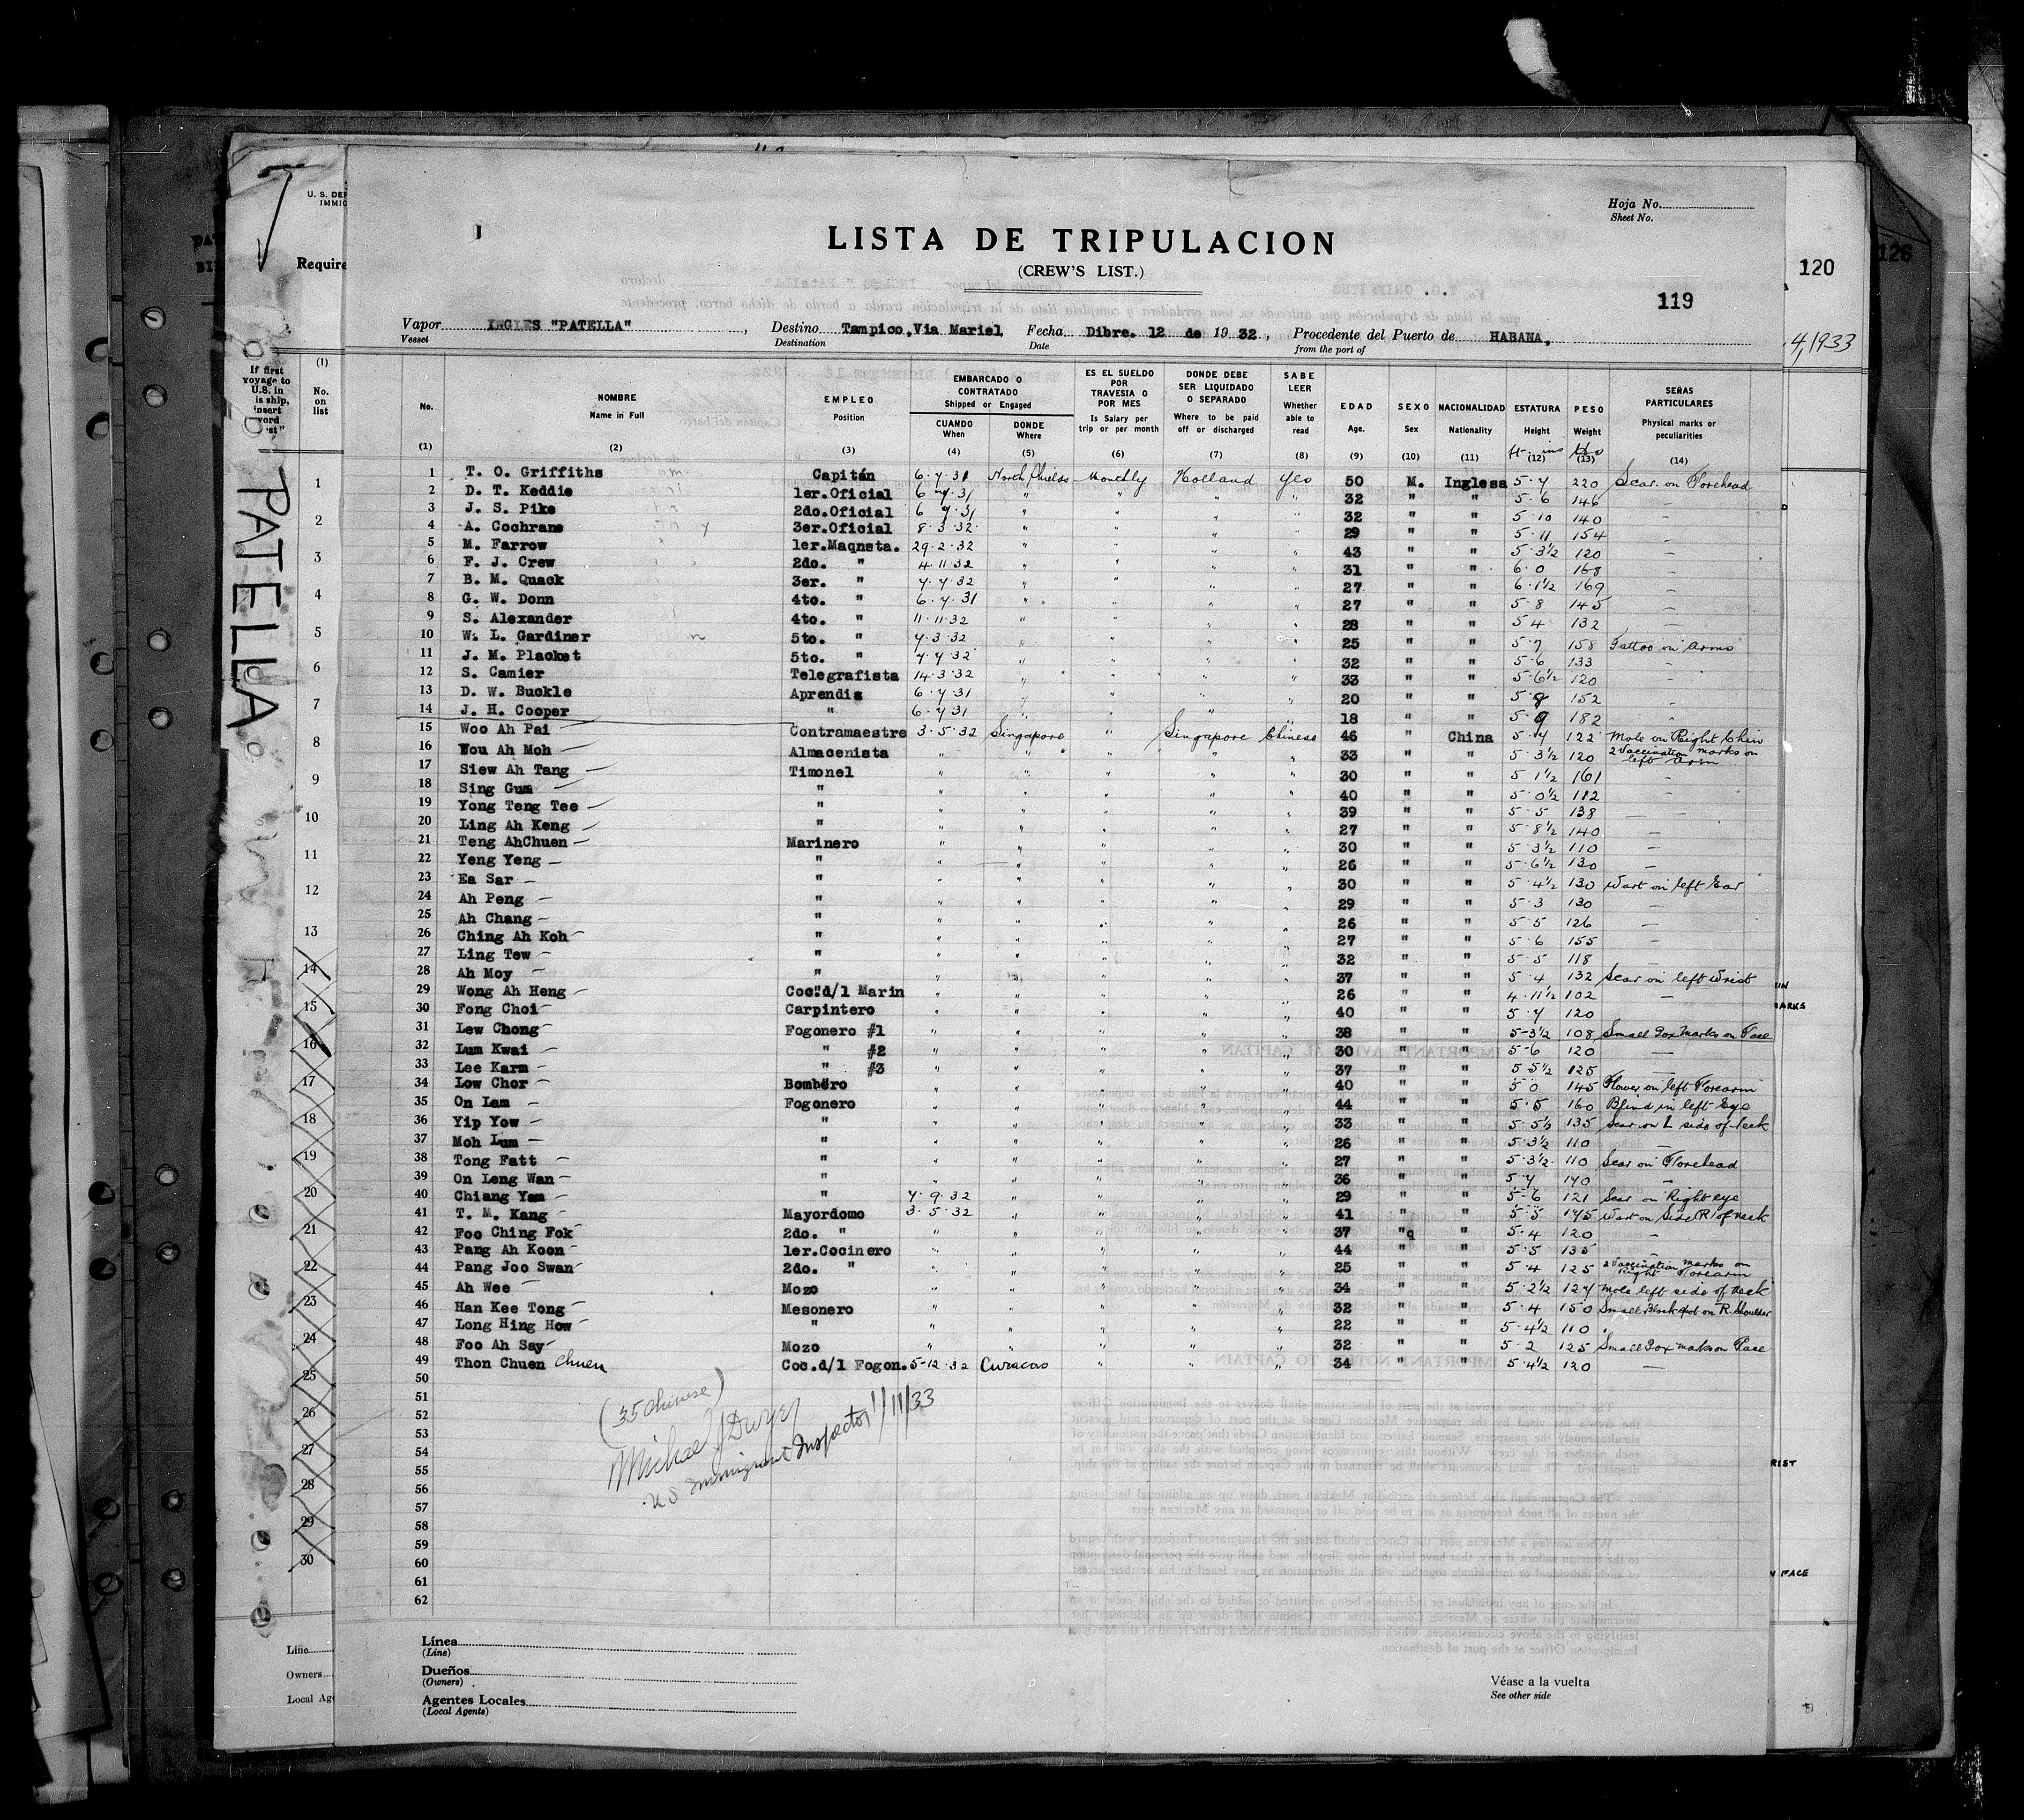 Hoja No.
Sheet No.
LISTA DE TRIPULACION
(CREW'S LIST.)
119
120
126
4, 1933
U. S. DEP
IMMIG
Require
PATELLA
Vapor INGLES "PATELLA", Destino Tampico, Via Mariel, Fecha Dibre. 12 de 1932, Procedente del Puerto de HABANA,
Vessel Destination Date from the port of
No. NOMBRE EMPLEO EMBARCADO O CONTRATADO ES EL SUELDO POR TRAVESIA O POR MES DONDE DEBE SER LIQUIDADO O SEPARADO SABE LEER EDAD SEXO NACIONALIDAD ESTATURA PESO SEÑAS PARTICULARES
Name in Full Position Shipped or Engaged Is Salary per trip or per month Where to be paid off or discharged Whether able to read Age. Sex Nationality Height Weight Physical marks or peculiarities
CUANDO When DONDE Where
(1) (2) (3) (4) (5) (6) (7) (8) (9) (10) (11) ft. ins (12) lbs (13) (14)
1 T. O. Griffiths Capitán 6·7·31 North Shields Monthly Holland Yes 50 M. Inglesa 5·7 220 Scar on Forehead
2 D. T. Keddie 1er.Oficial 6 7·31 " " " " 32 " " 5·6 146 —
3 J. S. Pike 2do.Oficial 6 7·31 " " " " 32 " " 5·10 140 —
4 A. Cochrane 3er.Oficial 8·3·32 " " " " 29 " " 5·11 154 —
5 M. Farrow 1er.Maqnsta. 29·2·32 " " " " 43 " " 5·3½ 120 —
6 F. J. Crew 2do. " 4·11·32 " " " " 31 " " 6·0 168 —
7 B. M. Quack 3er. " 7·7·32 " " " " 27 " " 6·1½ 169 —
8 G. W. Donn 4to. " 6·7·31 " " " " 27 " " 5·8 145 —
9 S. Alexander 4to. " 11·11·32 " " " " 28 " " 5 4 132 —
10 W. L. Gardiner 5to. " 7·3·32 " " " " 25 " " 5·7 158 Tattoo on arms
11 J. M. Placket 5to. " 7·7·32 " " " " 32 " " 5·6 133 —
12 S. Camier Telegrafista 14·3·32 " " " " 33 " " 5-6½ 120 —
13 D. W. Buckle Aprendiz 6·7·31 " " " " 20 " " 5·8 152 —
14 J. H. Cooper " 6·7·31 " " " " 18 " " 5·9 182 —
15 Woo Ah Pai Contramaestre 3·5·32 Singapore " Singapore Chinese 46 " China 5·7 122 Mole on Right Chin
16 Wou Ah Moh Almacenista " " " " " 33 " " 5 3½ 120 2 Vaccination marks on left arm
17 Siew Ah Tang Timonel " " " " " 30 " " 5 1½ 161 —
18 Sing Gum " " " " " " 40 " " 5·0½ 112 —
19 Yong Teng Tee " " " " " " 39 " " 5·5 138 —
20 Ling Ah Keng " " " " " " 27 " " 5·8½ 140 —
21 Teng AhChuen Marinero " " " " " 30 " " 5·3½ 110 —
22 Yeng Yeng " " " " " " 26 " " 5·6½ 130 —
23 Ea Sar " " " " " " 30 " " 5·4½ 130 Wart on left Ear
24 Ah Peng " " " " " " 29 " " 5·3 130 —
25 Ah Chang " " " " " " 26 " " 5·5 126 —
26 Ching Ah Koh " " " " " " 27 " " 5·6 155 —
27 Ling Tew " " " " " " 32 " " 5·5 118 —
28 Ah Moy " " " " " " 37 " " 5·4 132 Scar on left Wrist
29 Wong Ah Heng Coc"d/l Marin " " " " " 26 " " 4·11½ 102 —
30 Fong Choi Carpintero " " " " " 40 " " 5·7 120
31 Lew Chong Fogonero #1 " " " " " 38 " " 5-3½ 108 Small Pox Marks on Face
32 Lum Kwai " #2 " " " " " 30 " " 5-6 120 —
33 Lee Karm " #3 " " " " " 37 " " 5 5½ 125 —
34 Low Chor Bombero " " " " " 40 " " 5·0 145 Flower on left Forearm
35 On Lam Fogonero " " " " " 44 " " 5·5 160 Blind in left Eye
36 Yip Yow " " " " " " 33 " " 5·5½ 135 Scar on L side of neck
37 Moh Lum " " " " " " 26 " " 5·3½ 110 —
38 Tong Fatt " " " " " " 27 " " 5·3½ 110 Scar on Forehead
39 On Leng Wan " " " " " " 36 " " 5·7 140 —
40 Chiang Yam " 7·9·32 " " " " 29 " " 5-6 121 Scar on Right eye
41 T. M. Kang Mayordomo 3·5·32 " " " " 41 " " 5·5 145 Wart on Side R of neck
42 Foo Ching Fok 2do. " " " " " " 37 "q " 5·4 120 —
43 Pang Ah Koon 1er.Cocinero " " " " " 44 " " 5·5 135 —
44 Pang Joo Swan 2do. " " " " " " 25 " " 5 4 125 2 Vaccination marks on Right Forearm
45 Ah Wee Mozo " " " " " 34 " " 5·2½ 127 Mole left side of neck
46 Han Kee Tong Mesonero " " " " " 32 " " 5·4 150 Small Black spot on R. Shoulder
47 Long Hing How " " " " " " 22 " " 5·4½ 110
48 Foo Ah Say Mozo " " " " " 32 " " 5·2 125 Small Pox marks on Face
49 Thon Chuen Chuen Coc.d/l Fogon. 5-12·32 Curacao " " " 34 " " 5·4½ 120 —
50
51
52
53
54
55
56
57
58
59
60
61
62
(35 Chinese)
Michael J Dwyer
U S Immigrant Inspector 1/11/33
Línea
(Line)
Dueños
(Owners)
Agentes Locales
(Local Agents)
Véase a la vuelta
See other side
(1)
If first voyage to U.S. in is ship, insert word
No. on list
1
2
3
4
5
6
7
8
9
10
11
12
13
14
15
16
17
18
19
20
21
22
23
24
25
26
27
28
29
30
Line
Owners
Local Age
IN
MARKS
RIST
N FACE